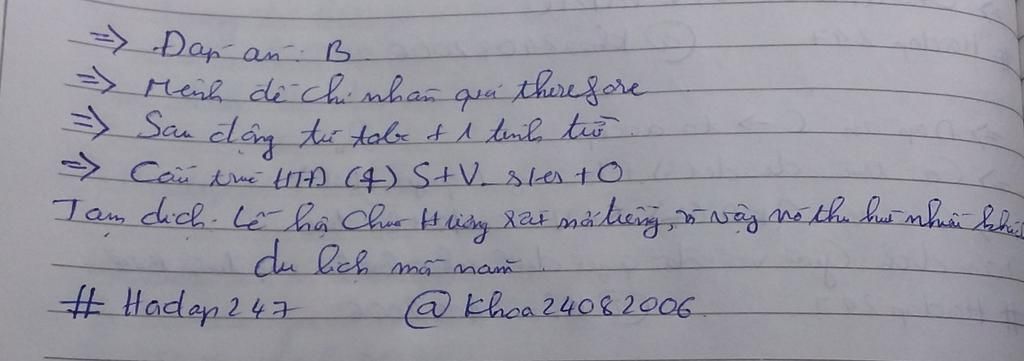 => Đáp án: B
=> Mệnh đề chỉ nhân quả therefore
=> Sau động từ tobe + 1 tính từ
=> Cấu trúc HTĐ (+) S+V_s/es + O
Tạm dịch: Lễ hội Chùa Hương rất nổi tiếng, vì vậy nó thu hút nhiều khách
du lịch mỗi năm
# Hoidap247 @Khoa24082006